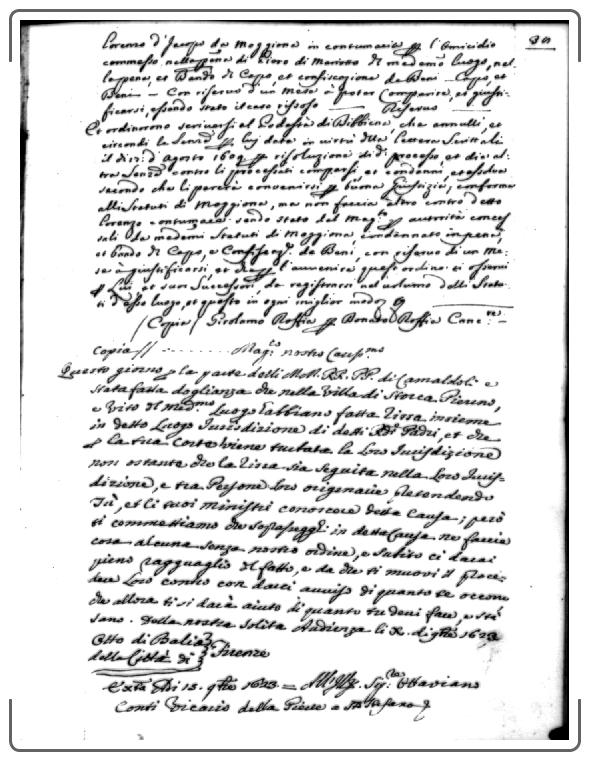 Lorenzo d'Jacopo da Moggiona in contumacia per l'omicidio
commesso nella persona di Piero di Mariotto di medemo luogo, nel
la pena, et Bando di Capo, et confiscazione de Beni - Capo, et
Beni - Con riservo d'un mese à poter comparire, et giusti-
ficarsi, essendo stato il caso rissoso Riservo
Et ordinorono scriversi al Podestà di Bibbiena che annulli, et
circondi la Senza per lui data in virtù della lettera Scrittali
il di 12: d'Agosto 1609 per risoluzione di d.o processo, et dia al-
tra Senza contro li processati comparsi, et condenni, et assolva
secondo che li parrà convenirsi per buona Giustizia, conforme
alli Statuti di Moggiona, ma non faccia altro contro detto
Lorenzo contumace sendo stato dal Mag.to per autorità conces
sali da medemi Statuti di Moggiona, condennato in pena,
et bando di Capo, e Confiscaz. de Beni, con riservo di un me-
se à giustificarsi, et che per l'avvenire quest'ordine si osservi
per Lui, et suoi Successori, da registrarsi nel volume delli Statu-
ti d'esso luogo, et questo in ogni miglior modo
(Copia) Girolamo Roffia per Donato Roffia Canc.re -
Copia // - - - - - - - Mag.co nostro Cariss.mo
Questo giorno per la parte delli M.M. RR. PP. di Camaldoli è
stata fatta doglianza che nella Villa di
e Vito il med.mo Luogo habbiano fatta rissa insieme
in detto Luogo Iurisdizione di detti R.di Padri, et che
per la tua Corte viene turbata la loro Iurisdizione
non ostante che la rissa sia seguita nella loro Iuris-
dizione, e tra Persone loro originarie pretendendo
Tù, et li tuoi ministri conoscere detta Causa; però
ti commettiamo che soprasegghi in detta Causa ne faccia
cosa alcuna senza nostro ordine, e subito ci darai
pieno ragguaglio del fatto, e da che ti muovi à proce-
dere loro contro con darci avviso di quanto te occorre
che allora ti si darà aiuto di quanto tu devi fare, e stà
sano. Dalla nostra solita Audienza li X. di 9bre 1623
Otto di Balia
della Città di } Firenze
Exta. Adi 13. 9bre 1623 = Sig.r Ottaviano
Conti Vicario della Pieve a S.to Stefano